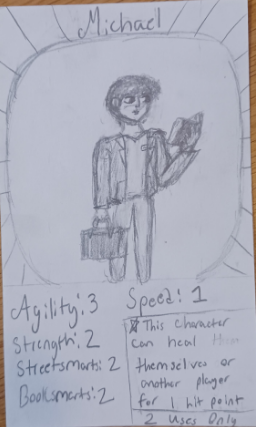 Michael
Agility: 3 Speed: 1
Strength: 2
Streetsmarts: 2
Booksmarts: 2
This character
can heal
themselves or
another player
for 1 hit point
2 Uses Only